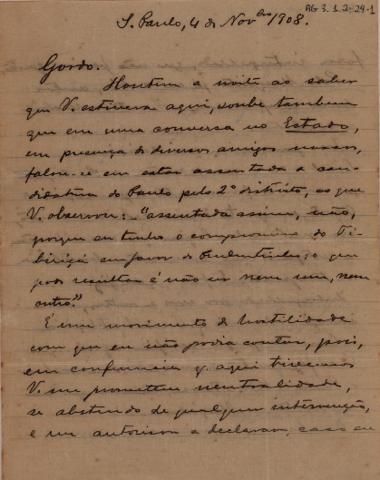 AG 3.1.2-29-1
S. Paulo, 4 de Novbro 1908.
Gordo.
Hontem a noite ao saber
que V. estivera aqui, soube tambem
que em uma conversa no Estado,
em presença de diversos amigos nossos,
falou-se em estar assentada a can-
didatura do Paulo pelo 2º districto, ao que
V. observou: "assentada assim, não,
porque eu tenho o compromisso do Ti-
biriçá em favor do Prudentinho; o que
pode resultar é não vir nem um, nem
outro."
É um movimento de hostilidade
com que eu não podia contar, pois,
em conferencia q. aqui tivemos
V. me prometteu neutralidade,
se abstendo de qualquer intervenção,
e me autorisou a declarar, caso eu